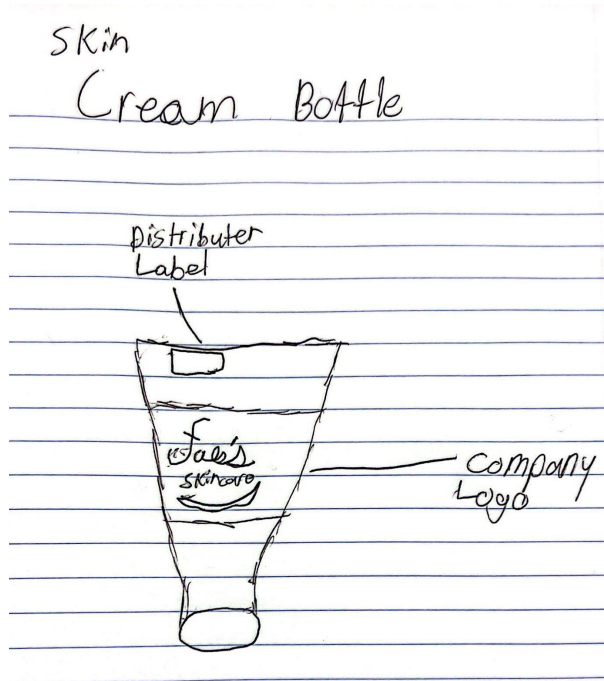 Skin
Cream Bottle
Distributer
Label
Skincare
Company
Logo